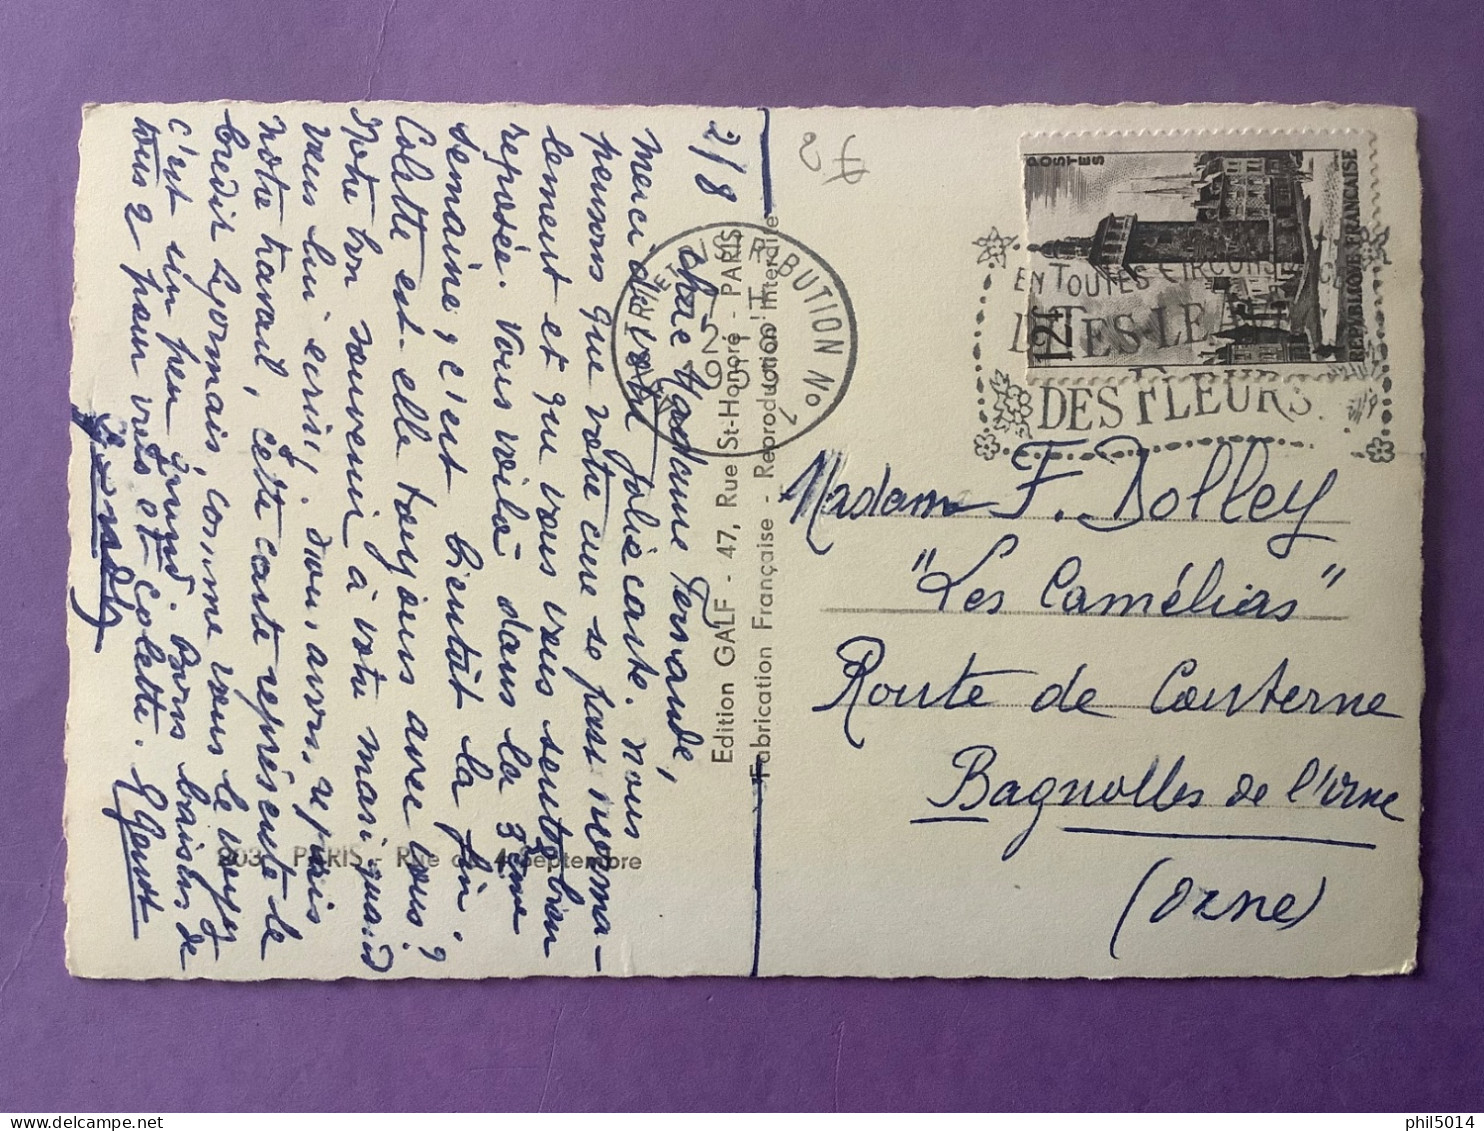 2/8
Chère Madame Fernande,
Merci de votre jolie carte. Nous
pensons que votre cure se passe norma-
lement et que vous vous sentez bien
reposée. Vous voilà dans la 3ème
semaine, c'est bientôt la fin.
Colette est-elle toujours avec vous ?
Notre bon souvenir à votre mari quand
vous lui écrirez, nous avons repris
notre travail, cette carte représente le
Crédit Lyonnais, comme vous le voyez
c'est un peu grand. Bons baisers de
nous 2 pour vous et Colette.
Edition GALF - 47, Rue St-Honoré - PARIS
Fabrication Française - Reproduction Interdite
203 PARIS - Rue du 4 Septembre
TRI ET DISTRIBUTION No
POSTES
12F
REPUBLIQUE FRANÇAISE
EN TOUTES CIRCONSTANCES
DITES-LE AVEC
DES FLEURS
Madame F. Dolley
"Les Camélias"
Route de Couterne
Bagnolles de l'Orne
(Orne)
phil5014